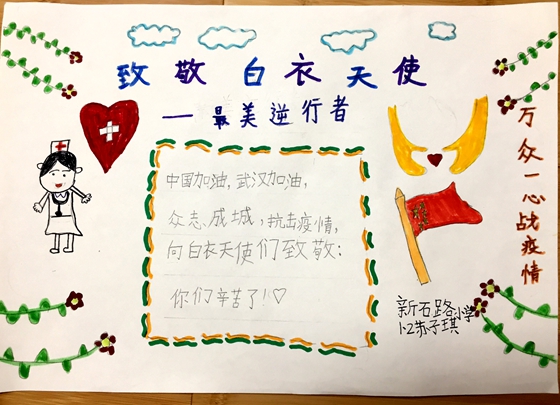 致敬白衣天使
—最美逆行者
万众一心战疫情
中国加油，武汉加油，
众志成城，抗击疫情，
向白衣天使们致敬：
你们辛苦了！♡
新石路小学
1-2苏子琪